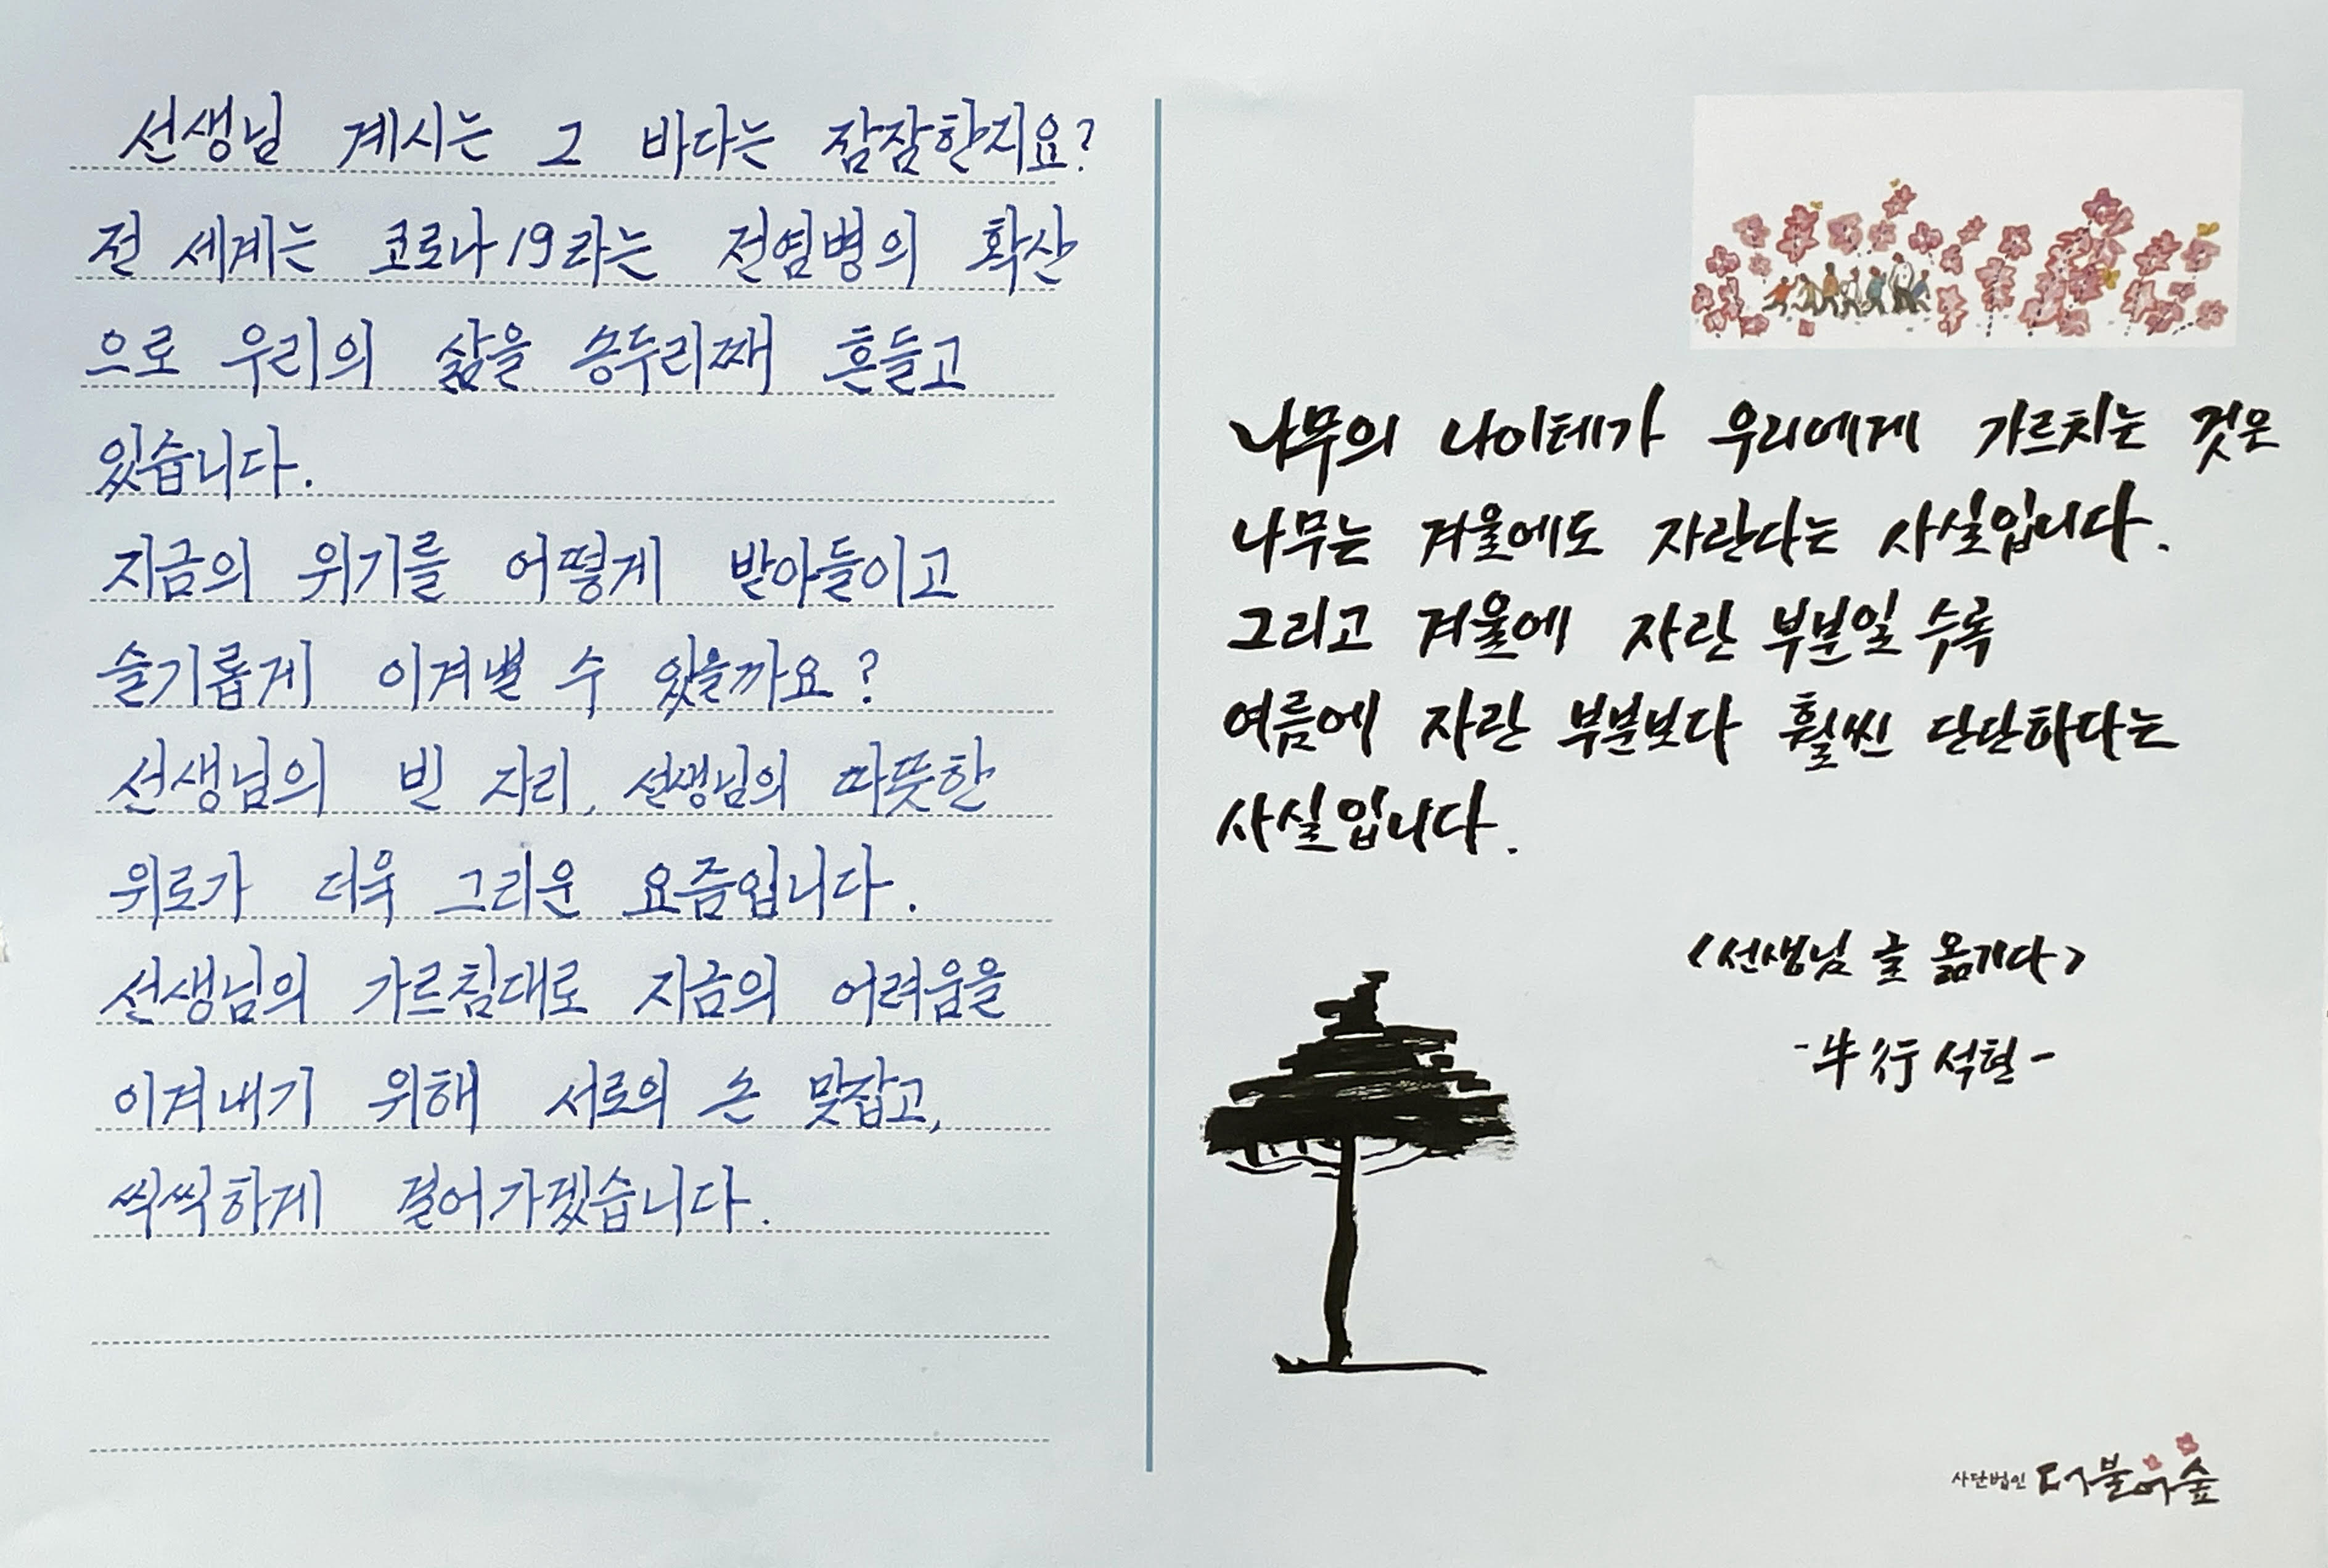 선생님 계시는 그 바다는 잠잠한지요?
전 세계는 코로나19라는 전염병의 확산
으로 우리의 삶을 송두리째 흔들고
있습니다.
지금의 위기를 어떻게 받아들이고
슬기롭게 이겨낼 수 있을까요?
선생님의 빈 자리, 선생님의 따뜻한
위로가 더욱 그리운 요즘입니다.
선생님의 가르침대로 지금의 어려움을
이겨내기 위해 서로의 손 맞잡고,
씩씩하게 걸어가겠습니다.
나무의 나이테가 우리에게 가르치는 것은
나무는 겨울에도 자란다는 사실입니다.
그리고 겨울에 자란 부분일 수록
여름에 자란 부분보다 훨씬 단단하다는
사실입니다.
<선생님 글 옮기다>
-牛行 석현-
사단법인 더불어숲